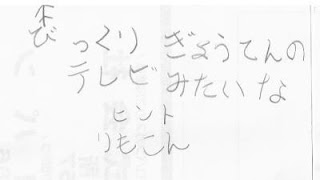 びっくりぎょうてんの
テレビみたいな
ヒント
りもこん